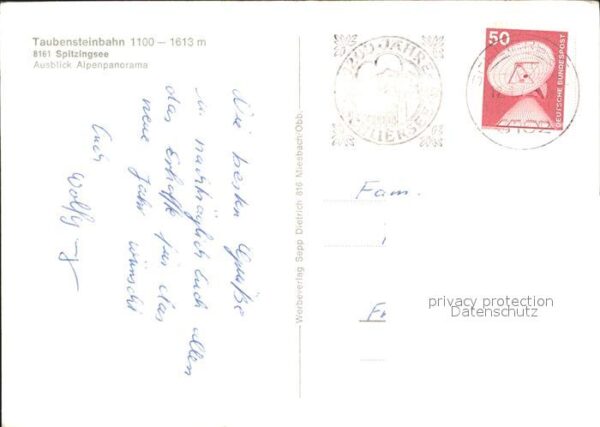 Taubensteinbahn 1100 – 1613 m
8161 Spitzingsee
Ausblick Alpenpanorama
Die besten Grüße
u. nachträglich Euch allen
das Erhoffte für das
neue Jahr wünscht
Euch Wolfgang
Werbeverlag Sepp Dietrich 816 Miesbach/Obb.
1200 JAHRE
SCHLIERSEE
50
DEUTSCHE BUNDESPOST
8162
Fam.
privacy protection
Datenschutz